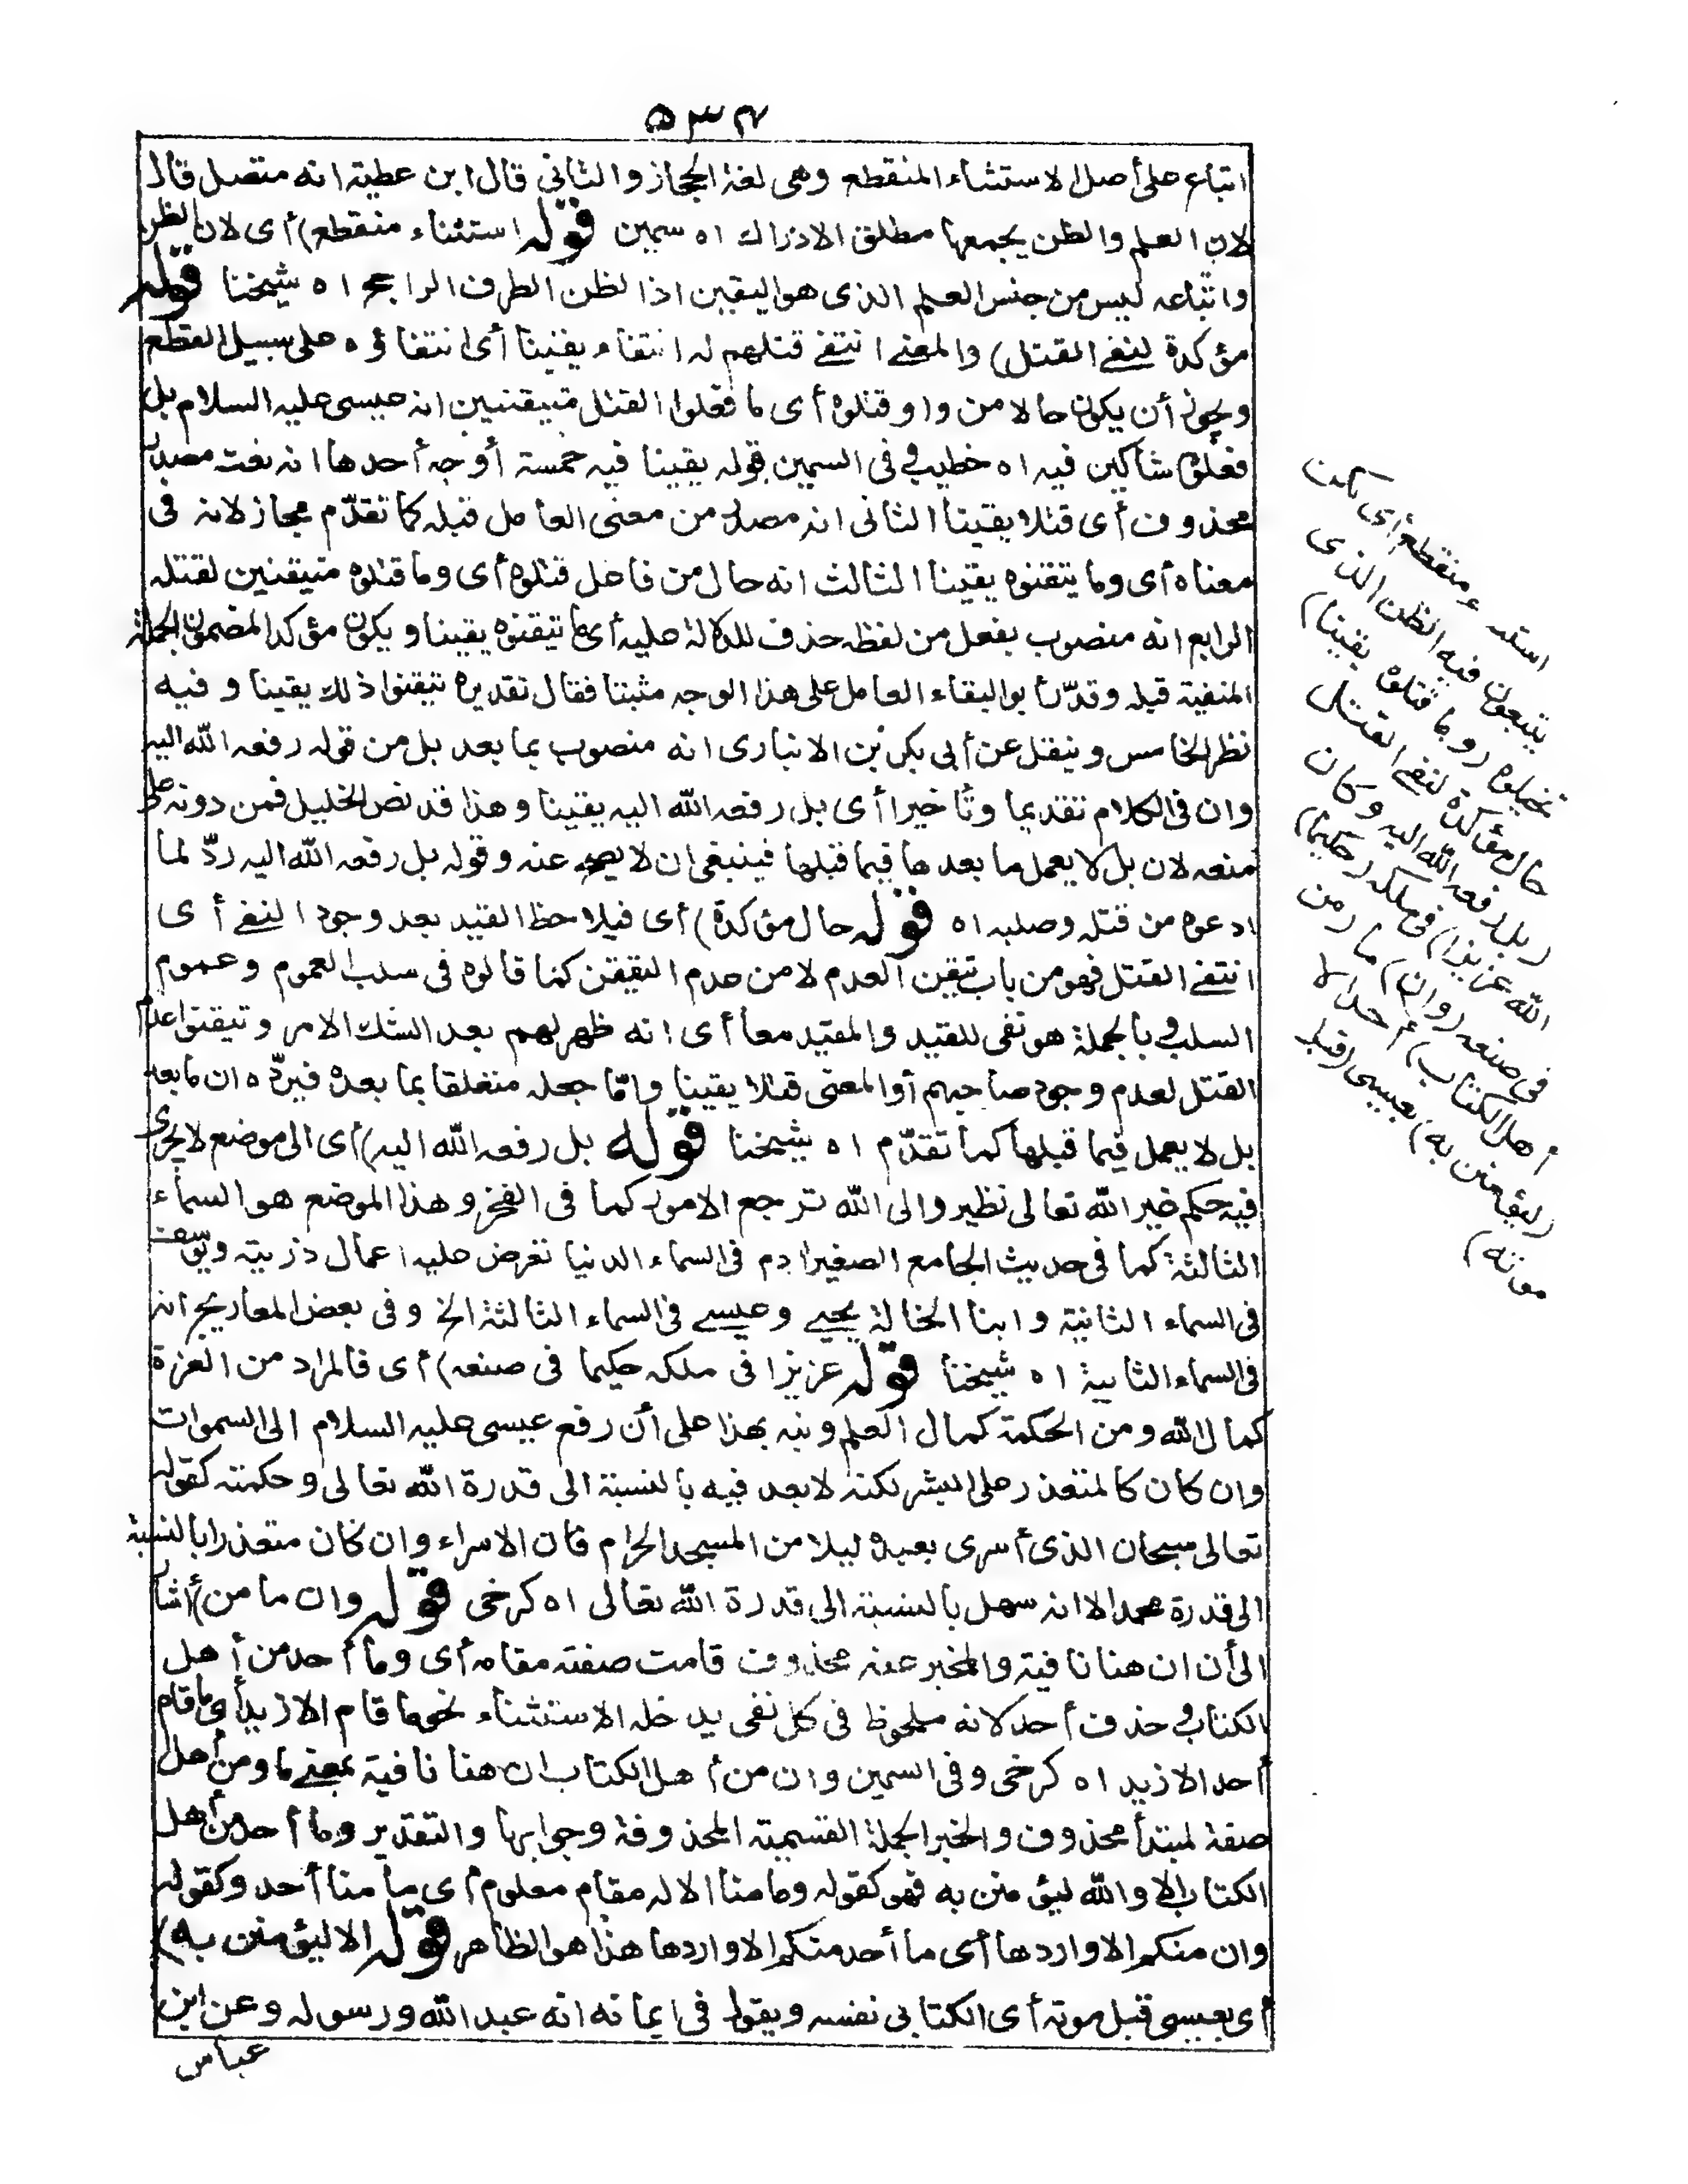 ٥٣٤
اتباع على أصل الاستثناء المنقطع وهى لغة الحجاز والثانى قال ابن عطية انه متصل قال
لان العلم والظن يجمعها مطلق الادراك اه سمين قوله استثناء منقطع) أى لان الظن
واتباعه ليس من جنس العلم الذى هو اليقين اذ الظن الطرف الراجح اه شيخنا قوله
مؤكدة لنفى القتل) والمعنى انتفى قتلهم له انتفاء يقينا أى انتفاؤه على سبيل القطع
ويجوز أن يكون حالا من واو قتلوه أى ما فعلوا القتل متيقنين انه عيسى عليه السلام بل
فعلوه شاكين فيه اه خطيب وفى السمين قوله يقينا فيه خمسة أوجه أحدها انه نعت مصدر
محذوف أى قتلا يقينا الثانى انه مصدر من معنى العامل قبله كما تقدّم مجاز لانه فى
معناه أى وما يتقنوه يقينا الثالث انه حال من فاعل قتلوه أى وما قتلوه متيقنين لقتله
الرابع انه منصوب بفعل من لفظه حذف للدلالة عليه أى ما تيقنوه يقينا ويكون مؤكدا لمضمون الجملة
المنفية قبله وقدّر أبو البقاء العامل على هذا الوجه مثبتا فقال تقديره تيقنوا ذلك يقينا وفيه
نظر الخامس وينقل عن أبى بكر بن الانبارى انه منصوب بما بعد بل من قوله رفعه الله اليه
وان فى الكلام تقديما وتأخيرا أى بل رفعه الله اليه يقينا وهذا قد نص الخليل فمن دونه على
منعه لان بل لا يعمل ما بعدها فيما قبلها فينبغى ان لا يصح عنه وقوله بل رفعه الله اليه ردّ لما
ادعوه من قتله وصلبه اه قوله حال مؤكدة) أى فيلاحظ القيد بعد وجود النفى أى
انتفى القتل فهو من باب تيقن العدم لا من عدم التيقن كما قالوه فى سلب العموم وعموم
السلب وبالجملة هو نفى للقيد والمقيد معا أى انه ظهر لهم بعد الشك الامر وتيقنوا عدم
القتل لعدم وجود صاحبهم أو المعنى قتلا يقينا وامّا جعله متعلقا بما بعده فيردّه ان ما بعد
بل لا يعمل فيما قبلها كما تقدّم اه شيخنا قوله بل رفعه الله اليه) أى الى موضع لا يجرى
فيه حكم غير الله تعالى نظير والى الله ترجع الامور كما فى الفخر وهذا الموضع هو السماء
الثالثة كما فى حديث الجامع الصغير ادم فى السماء الدنيا تعرض عليه اعمال ذريته ويوسف
فى السماء الثانية وابنا الخالة يحيى وعيسى فى السماء الثالثة الخ وفى بعض المعاريج انه
فى السماء الثانية اه شيخنا قوله عزيزا فى ملكه حكيما فى صنعه) أى فالمراد من العزة
كمال الله ومن الحكمة كمال العلم ونبه بهذا على أن رفع عيسى عليه السلام الى السموات
وان كان كالمتعذر على البشر لكنه لا بعد فيه بالنسبة الى قدرة الله تعالى وحكمته كقوله
تعالى سبحان الذى أسرى بعبده ليلا من المسجد الحرام فان الاسراء وان كان متعذرا بالنسبة
الى قدرة محمد الا انه سهل بالنسبة الى قدرة الله تعالى اه كرخى قوله وان ما من) أشار
الى أن ان هنا نافية والمخبر عنه محذوف قامت صفته مقامه أى وما أحد من أهل
الكتاب وحذف أحد لانه ملحوظ فى كل نفى يدخله الاستثناء نحو ما قام الا زيد أى ما قام
أحد الا زيد اه كرخى وفى السمين وان من أهل الكتاب ان هنا نافية بمعنى ما ومن أهل
صفة لمبتدأ محذوف والخبر الجملة القسمية المحذوفة وجوابها والتقدير وما أحد من أهل
الكتاب الا والله ليؤمنن به فهو كقوله وما منا الا له مقام معلوم أى ما منا أحد وكقوله
وان منكم الا واردها أى ما أحد منكم الا واردها هذا هو الظاهر قوله الا ليؤمنن به)
أى بعيسى قبل موته أى الكتابى نفسه ويقول فى ايمانه انه عبد الله ورسوله وعن ابن
عباس
منقطع أى لكن
يتبعون فيه الظن الذى
تخيلوه (وما قتلوه يقينا)
حال مؤكدة لنفى القتل
(بل رفعه الله اليه وكان
الله عزيزا) فى ملكه (حكيما)
فى صنعه (وان) ما (من
أهل الكتاب) أحد (الا
ليؤمنن به) بعيسى (قبل
موته)